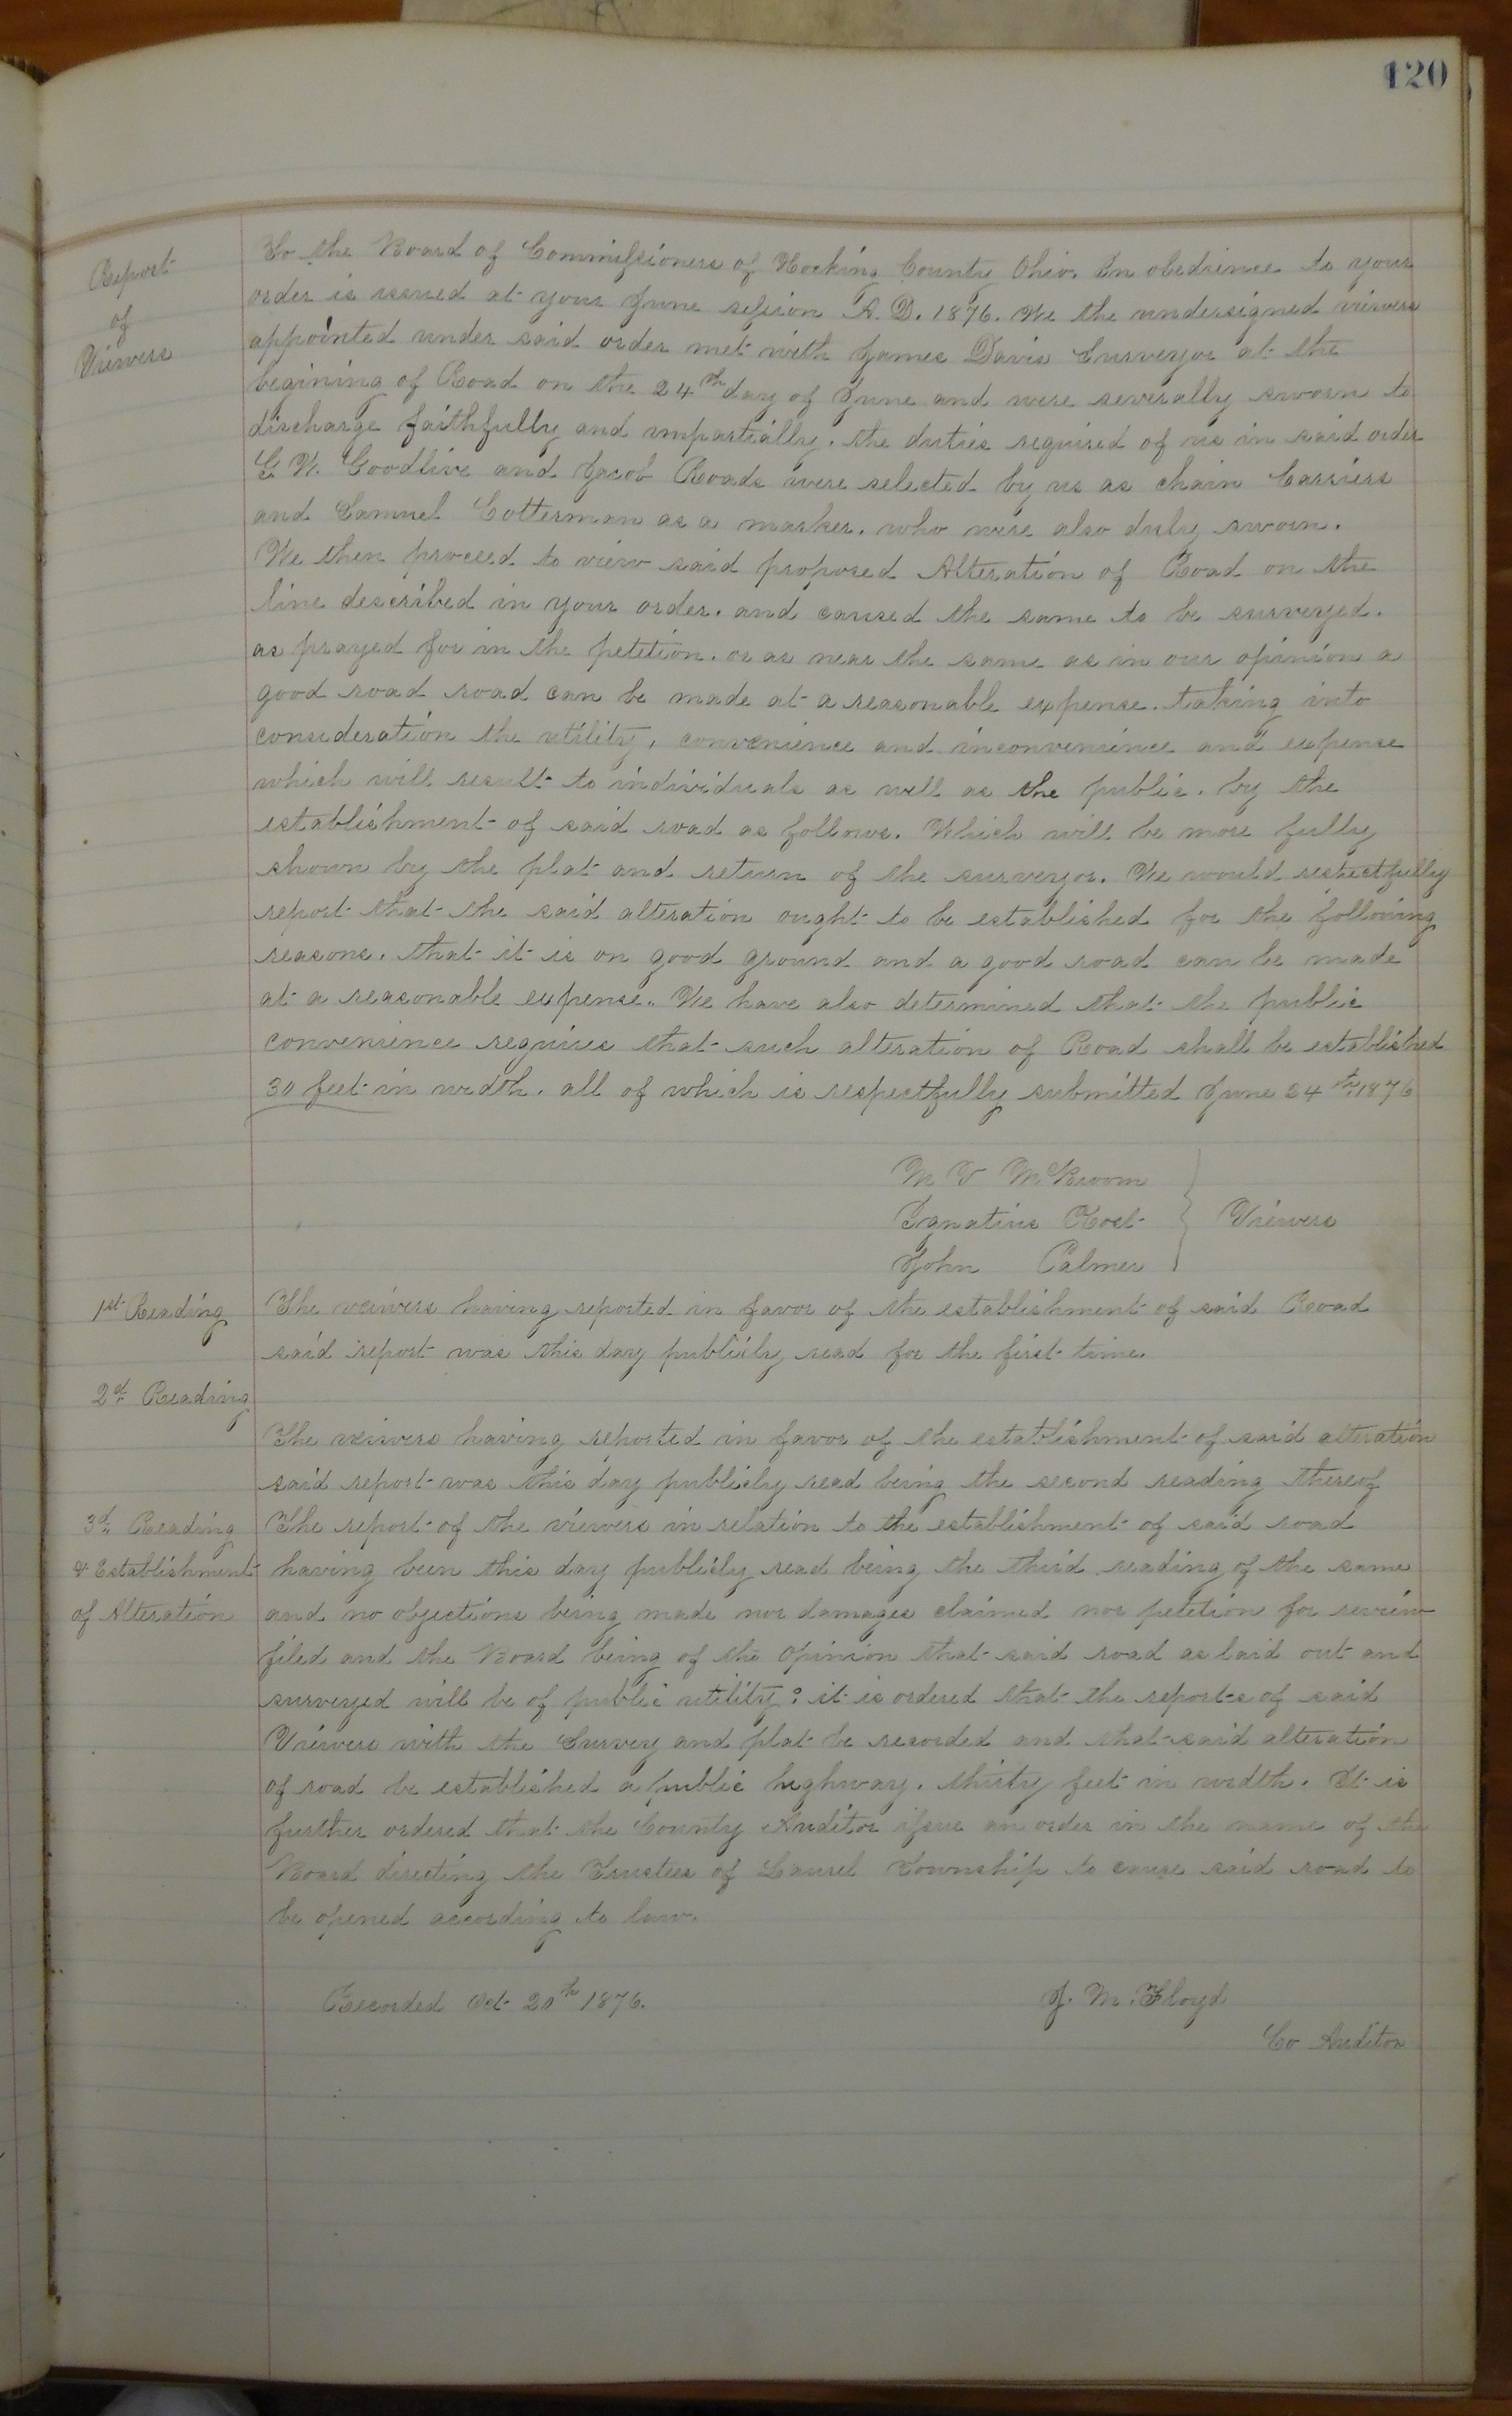 120
Report
of
Viewers
To the Board of Commissioners of Hocking County Ohio. In obedience to your
order is issued at your June session A. D. 1876. We the undersigned viewers
appointed under said order met with James Davis Surveyor at the
begining of Road on the 24th day of June and were severally sworn to
discharge faithfully and impartially. the duties required of us in said order
G W. Goodlive and Jacob Roads were selected by us as chain Carriers
and Samuel Cotterman as a marker. who were also duly sworn.
We then proceed to view said proposed Alteration of Road on the
line described in your order. and caused the same to be surveyed.
as prayed for in the petition. or as near the same as in our opinion a
good road road can be made at a reasonable expense. taking into
consideration the utility, convenience and inconvenience and expense
which will result to individuals as well as the public. by the
establishment of said road as follows. Which will be more fully
shown by the plat and return of the surveyor. We would respectfully
report that the said alteration ought to be established for the following
reasons. that it is on good ground and a good road can be made
at a reasonable expense. We have also determined that the public
convenience requires that such alteration of Road shall be established
30 feet in width. all of which is respectfully submitted June 24th 1876
M V McBroom
Ignatius Kost
John Palmer
Viewers
1st Reading
The veiwers having reported in favor of the establishment of said Road
said report was this day publicly read for the first time.
2d Reading
The veiwers having reported in favor of the establishment of said alteration
said report was this day publicly read being the second reading thereof
3d Reading
& Establishment
of Alteration
The report of the viewers in relation to the establishment of said road
having been this day publicly read being the third reading of the same
and no objections being made nor damages claimed nor petition for review
filed and the Board being of the opinion that said road as laid out and
surveyed will be of public utility: it is ordered that the reports of said
Viewers with the Survey and plat be recorded and that said alteration
of road be established a public highway. thirty feet in width. It is
further ordered that the County Auditor issue an order in the name of the
Board directing the Trustees of Laurel Township to cause said road to
be opened according to law.
Recorded Oct 20th 1876.
J. M. Floyd
Co Auditor